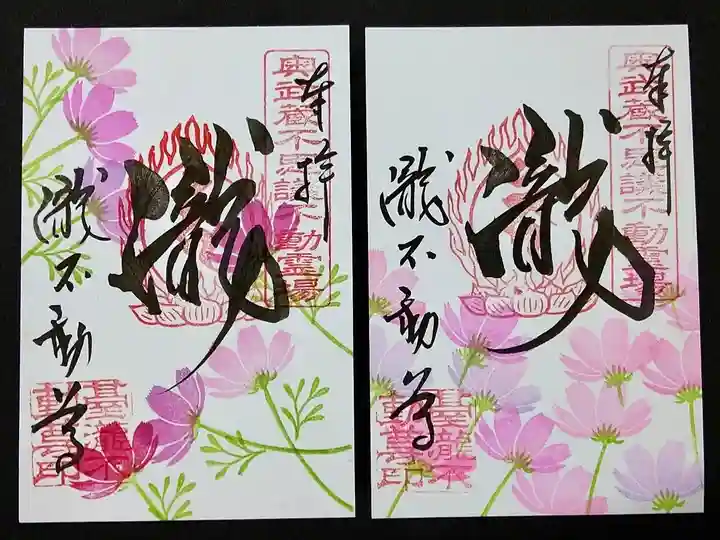 奉拝
奥武蔵不思議不動霊場
瀧
瀧不動尊
奉拝
奥武蔵不思議不動霊場
瀧
瀧不動尊